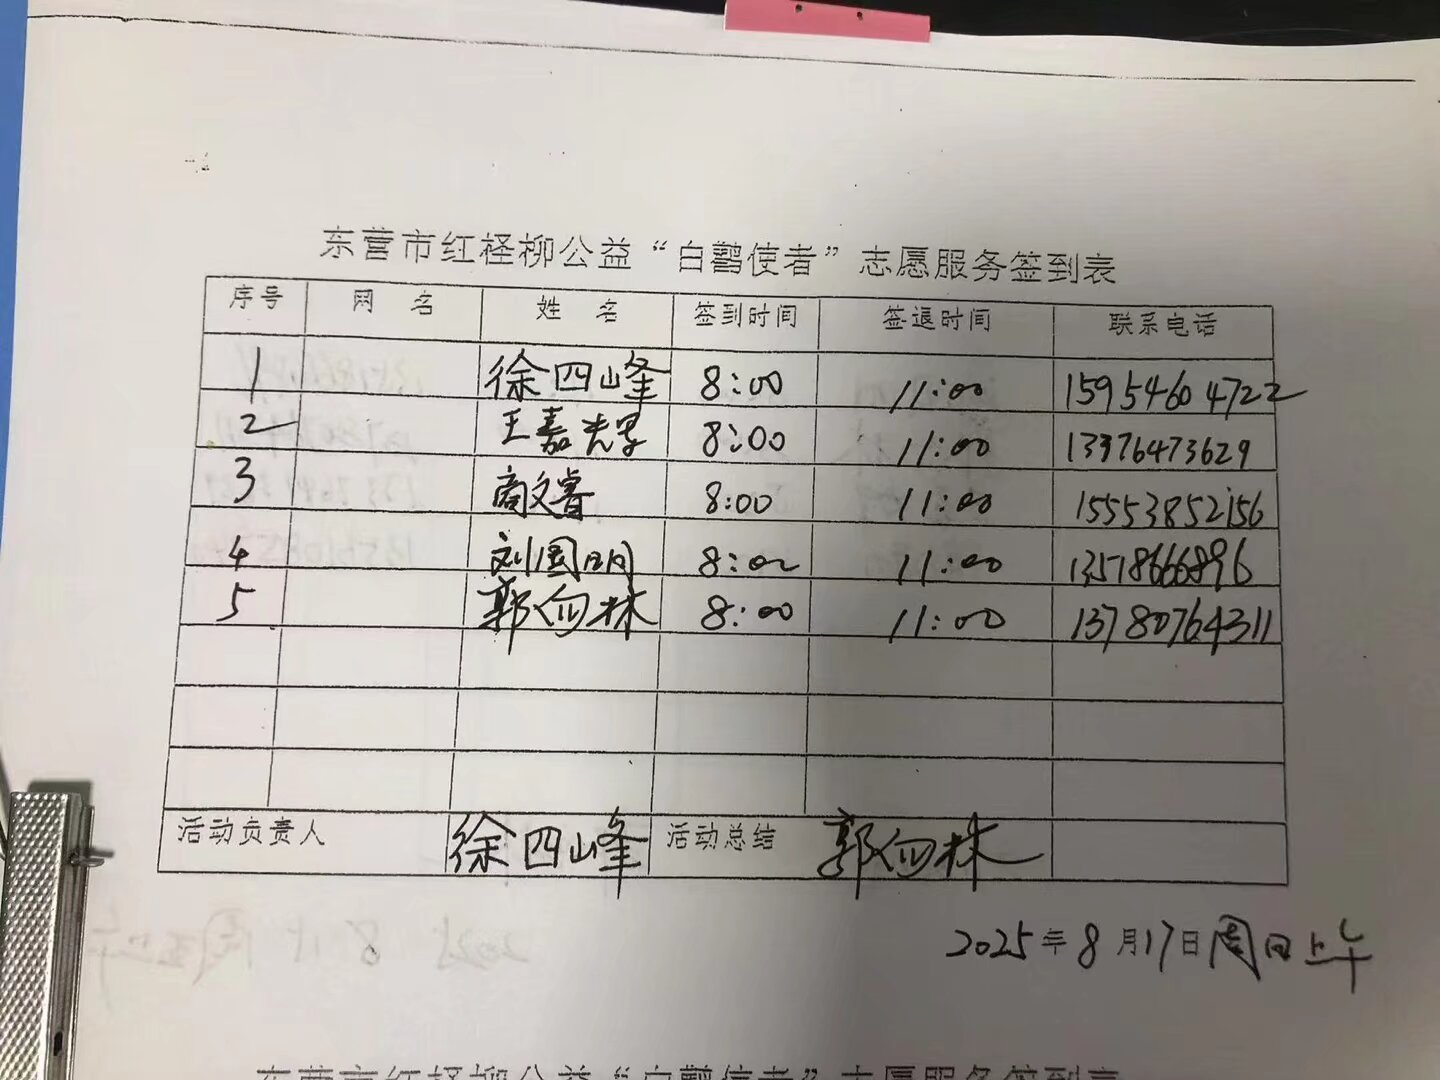 东营市红柽柳公益“白鹳使者”志愿服务签到表
序号 网名 姓名 签到时间 签退时间 联系电话
1 徐四峰 8:00 11:00 15954604722
2 王嘉 8:00 11:00 13376473629
3 商文睿 8:00 11:00 15553852156
4 刘国明 8:00 11:00 13578666896
5 郭向林 8:00 11:00 13780764311
活动负责人 徐四峰 活动总结 郭向林
2025年8月17日周日上午
东营市红柽柳公益“白鹳使者”志愿服务签到表